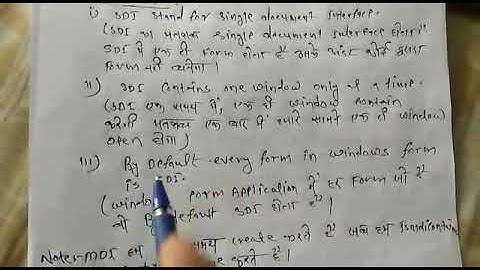 i) SDI stand for single document Interface.
(SDI का मतलब single document Interface होता है
SDI में एक ही Form होता है उसके अंदर कोई दूसरा
Form नहीं चलेगा।
ii) SDI Contains one window only at a time.
(SDI एक समय में, एक ही window contain
करेगी मतलब एक बार में हमारे सामने एक ही window
open होगा)
iii) By Default every form in windows form
is SDI.
(windows Form Application में हर Form जो है
वो By default SDI होता है।
Note:- MDI हम समय create करते है जब हम
करते है।